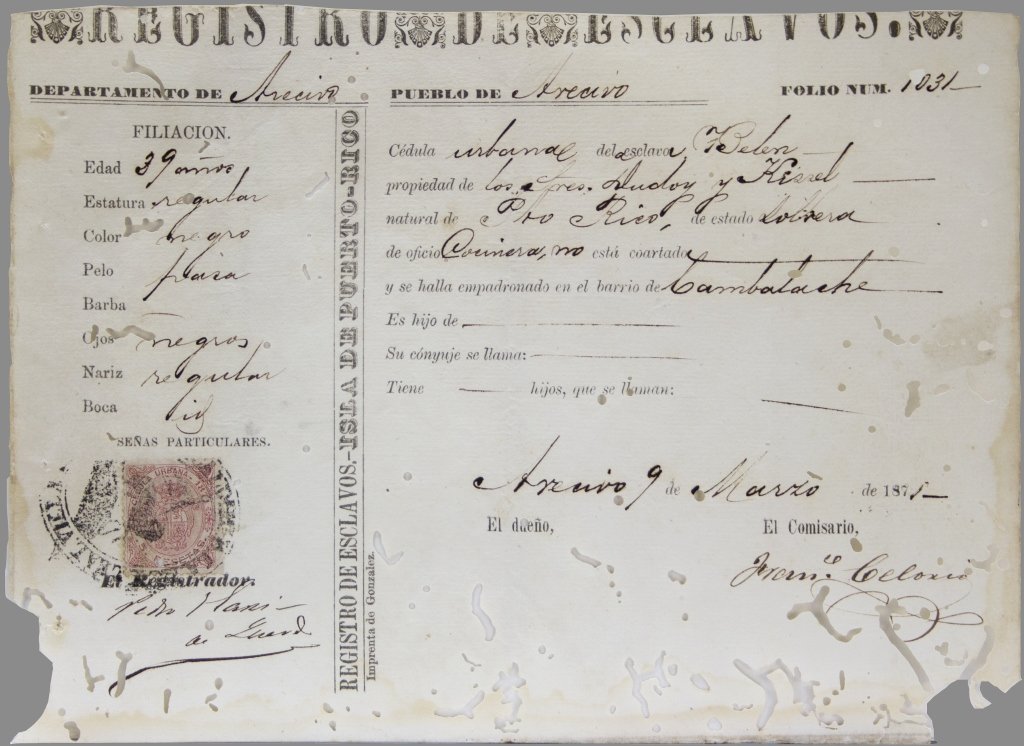 REGISTRO DE ESCLAVOS.
DEPARTAMENTO DE Arecivo PUEBLO DE Arecivo FOLIO NUM. 1031
FILIACION.
Edad 39 años
Estatura regular
Color negro
Pelo pasa
Barba
Ojos negros
Nariz regular
Boca id
SEÑAS PARTICULARES.
URBANA
El Registrador.
REGISTRO DE ESCLAVOS.—ISLA DE PUERTO-RICO
Imprenta de Gonzalez.
Cédula urbana del esclavo Belen
propiedad de los Sres. y
natural de Pto Rico, de estado soltera
de oficio Cocinera, no está coartado
y se halla empadronado en el barrio de Cambalache
Es hijo de
Su cónyuje se llama:
Tiene hijos, que se llaman:
Arecivo 9 de Marzo de 187
El dueño, El Comisario,
Franco.